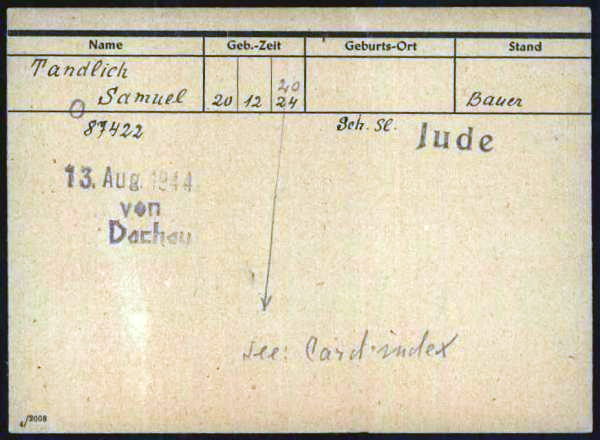 Name Geb.-Zeit Geburts-Ort Stand
Tandlich
20
Samuel 20 12 24 Bauer
87422 Sch. Sl. Jude
13. Aug. 1944
von
Dachau
see: Card-index
4/2008